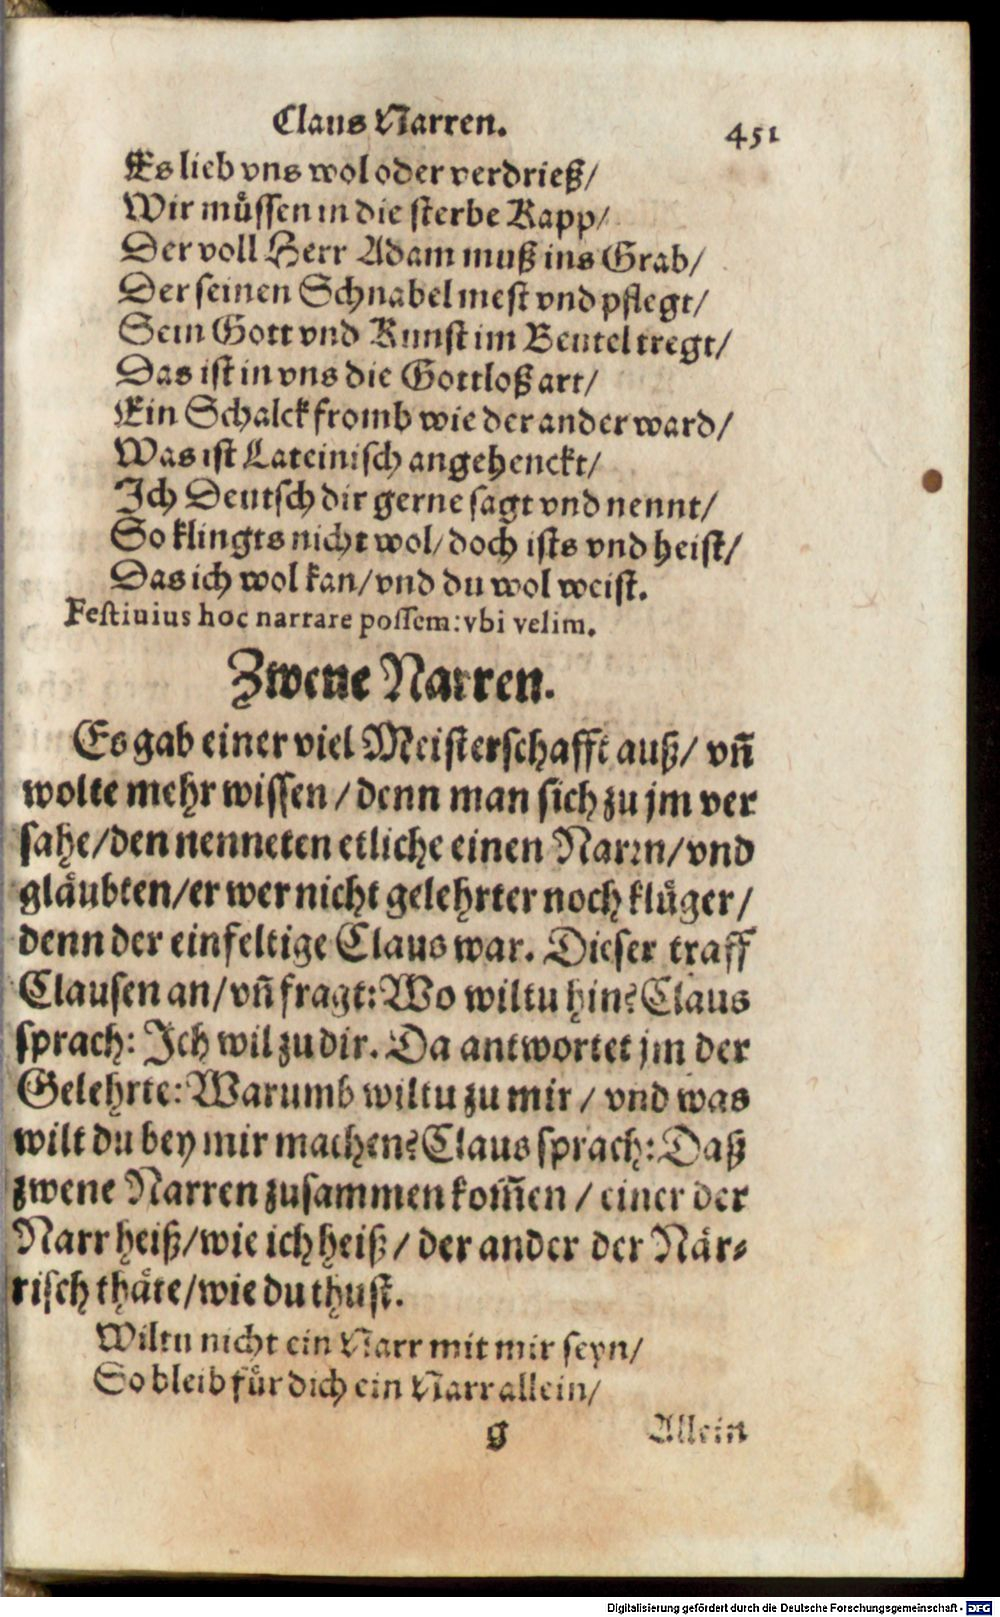 Claus Narren. 451
Es lieb vns wol oder verdrieß/
Wir müssen in die sterbe Kapp/
Der voll Herr Adam muß ins Grab/
Der seinen Schnabel mest vnd pflegt/
Sein Gott vnd Kunst im Beutel tregt/
Das ist in vns die Gottloß art/
Ein Schalck fromb wie der ander ward/
Was ist Lateinisch angehenckt/
Ich Deutsch dir gerne sagt vnd nennt/
So klingts nicht wol/ doch ists vnd heist/
Das ich wol kan/ vnd du wol weist.
Festiuius hoc narrare possem: vbi velim.
Zwene Narren.
Es gab einer viel Meisterschafft auß/ vñ
wolte mehr wissen/ denn man sich zu jm ver
sahe/ den nenneten etliche einen Narrn/ vnd
gläubten/ er wer nicht gelehrter noch klüger/
denn der einfeltige Claus war. Dieser traff
Clausen an/ vñ fragt: Wo wiltu hin? Claus
sprach: Ich wil zu dir. Da antwortet jm der
Gelehrte: Warumb wiltu zu mir/ vnd was
wilt du bey mir machen? Claus sprach: Daß
zwene Narren zusammen kom̃en/ einer der
Narr heiß/ wie ich heiß/ der ander der När-
risch thäte/ wie du thust.
Wiltu nicht ein Narr mit mir seyn/
So bleib für dich ein Narr allein/
g Allein
Digitalisierung gefördert durch die Deutsche Forschungsgemeinschaft - DFG